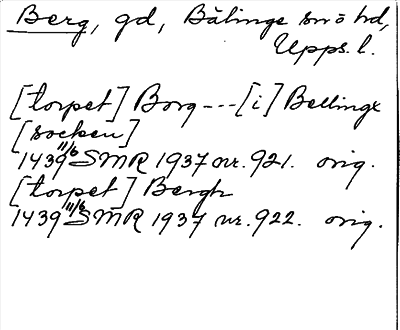 Berg, gd, Bälinge sn o hd,
Upps. l.
[torpet] Borg --- [i] Bellinge
[socken]
1439 11/6 SMR 1937 nr. 921. orig.
[torpet] Bergh
1439 11/6 SMR 1937 nr. 922. orig.